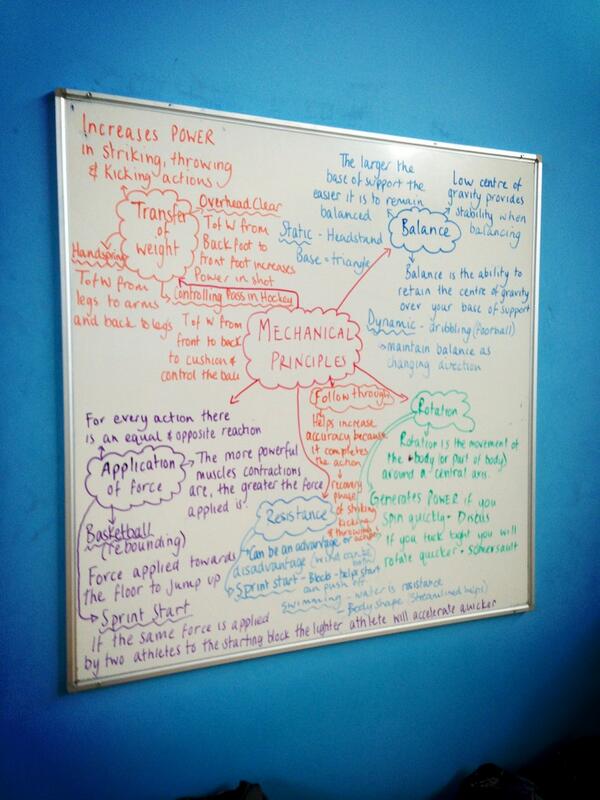 INCREASES POWER
in striking, throwing
& kicking actions
Transfer
of
weight
Overhead Clear
T of W from
Back foot to
front foot increases
Power in shot
Handspring
T of W from
legs to arms
and back to legs
Controlling Pass in Hockey
T of W from
front to back
to cushion &
control the ball
MECHANICAL
PRINCIPLES
The larger the
base of support the
easier it is to remain
balanced
Low centre of
gravity provides
stability when
balancing
Balance
Static - Headstand
Base = triangle
Balance is the ability to
retain the centre of gravity
over your base of support
Dynamic - dribbling (football)
maintain balance as
changing direction
For every action there
is an equal & opposite reaction
Application
of force
The more powerful
muscles contractions
are, the greater the force
applied is.
Basketball
(rebounding)
Force applied towards
the floor to jump up
Sprint Start
If the same force is applied
by two athletes to the starting block the lighter athlete will accelerate quicker
Follow through
Helps increase
accuracy because
it completes
the action
recovery
phase
of striking
kicking
& throwing
actions
Resistance
Can be an advantage or
disadvantage (wind can be both)
Sprint start - Blocks - helps start
can push off
Swimming - water is resistance
Body shape (streamlined helps)
Rotation
Rotation is the movement of
the body (or part of body)
around a central axis.
Generates POWER if you
spin quickly - Discus
if you tuck tight you will
rotate quicker - somersault